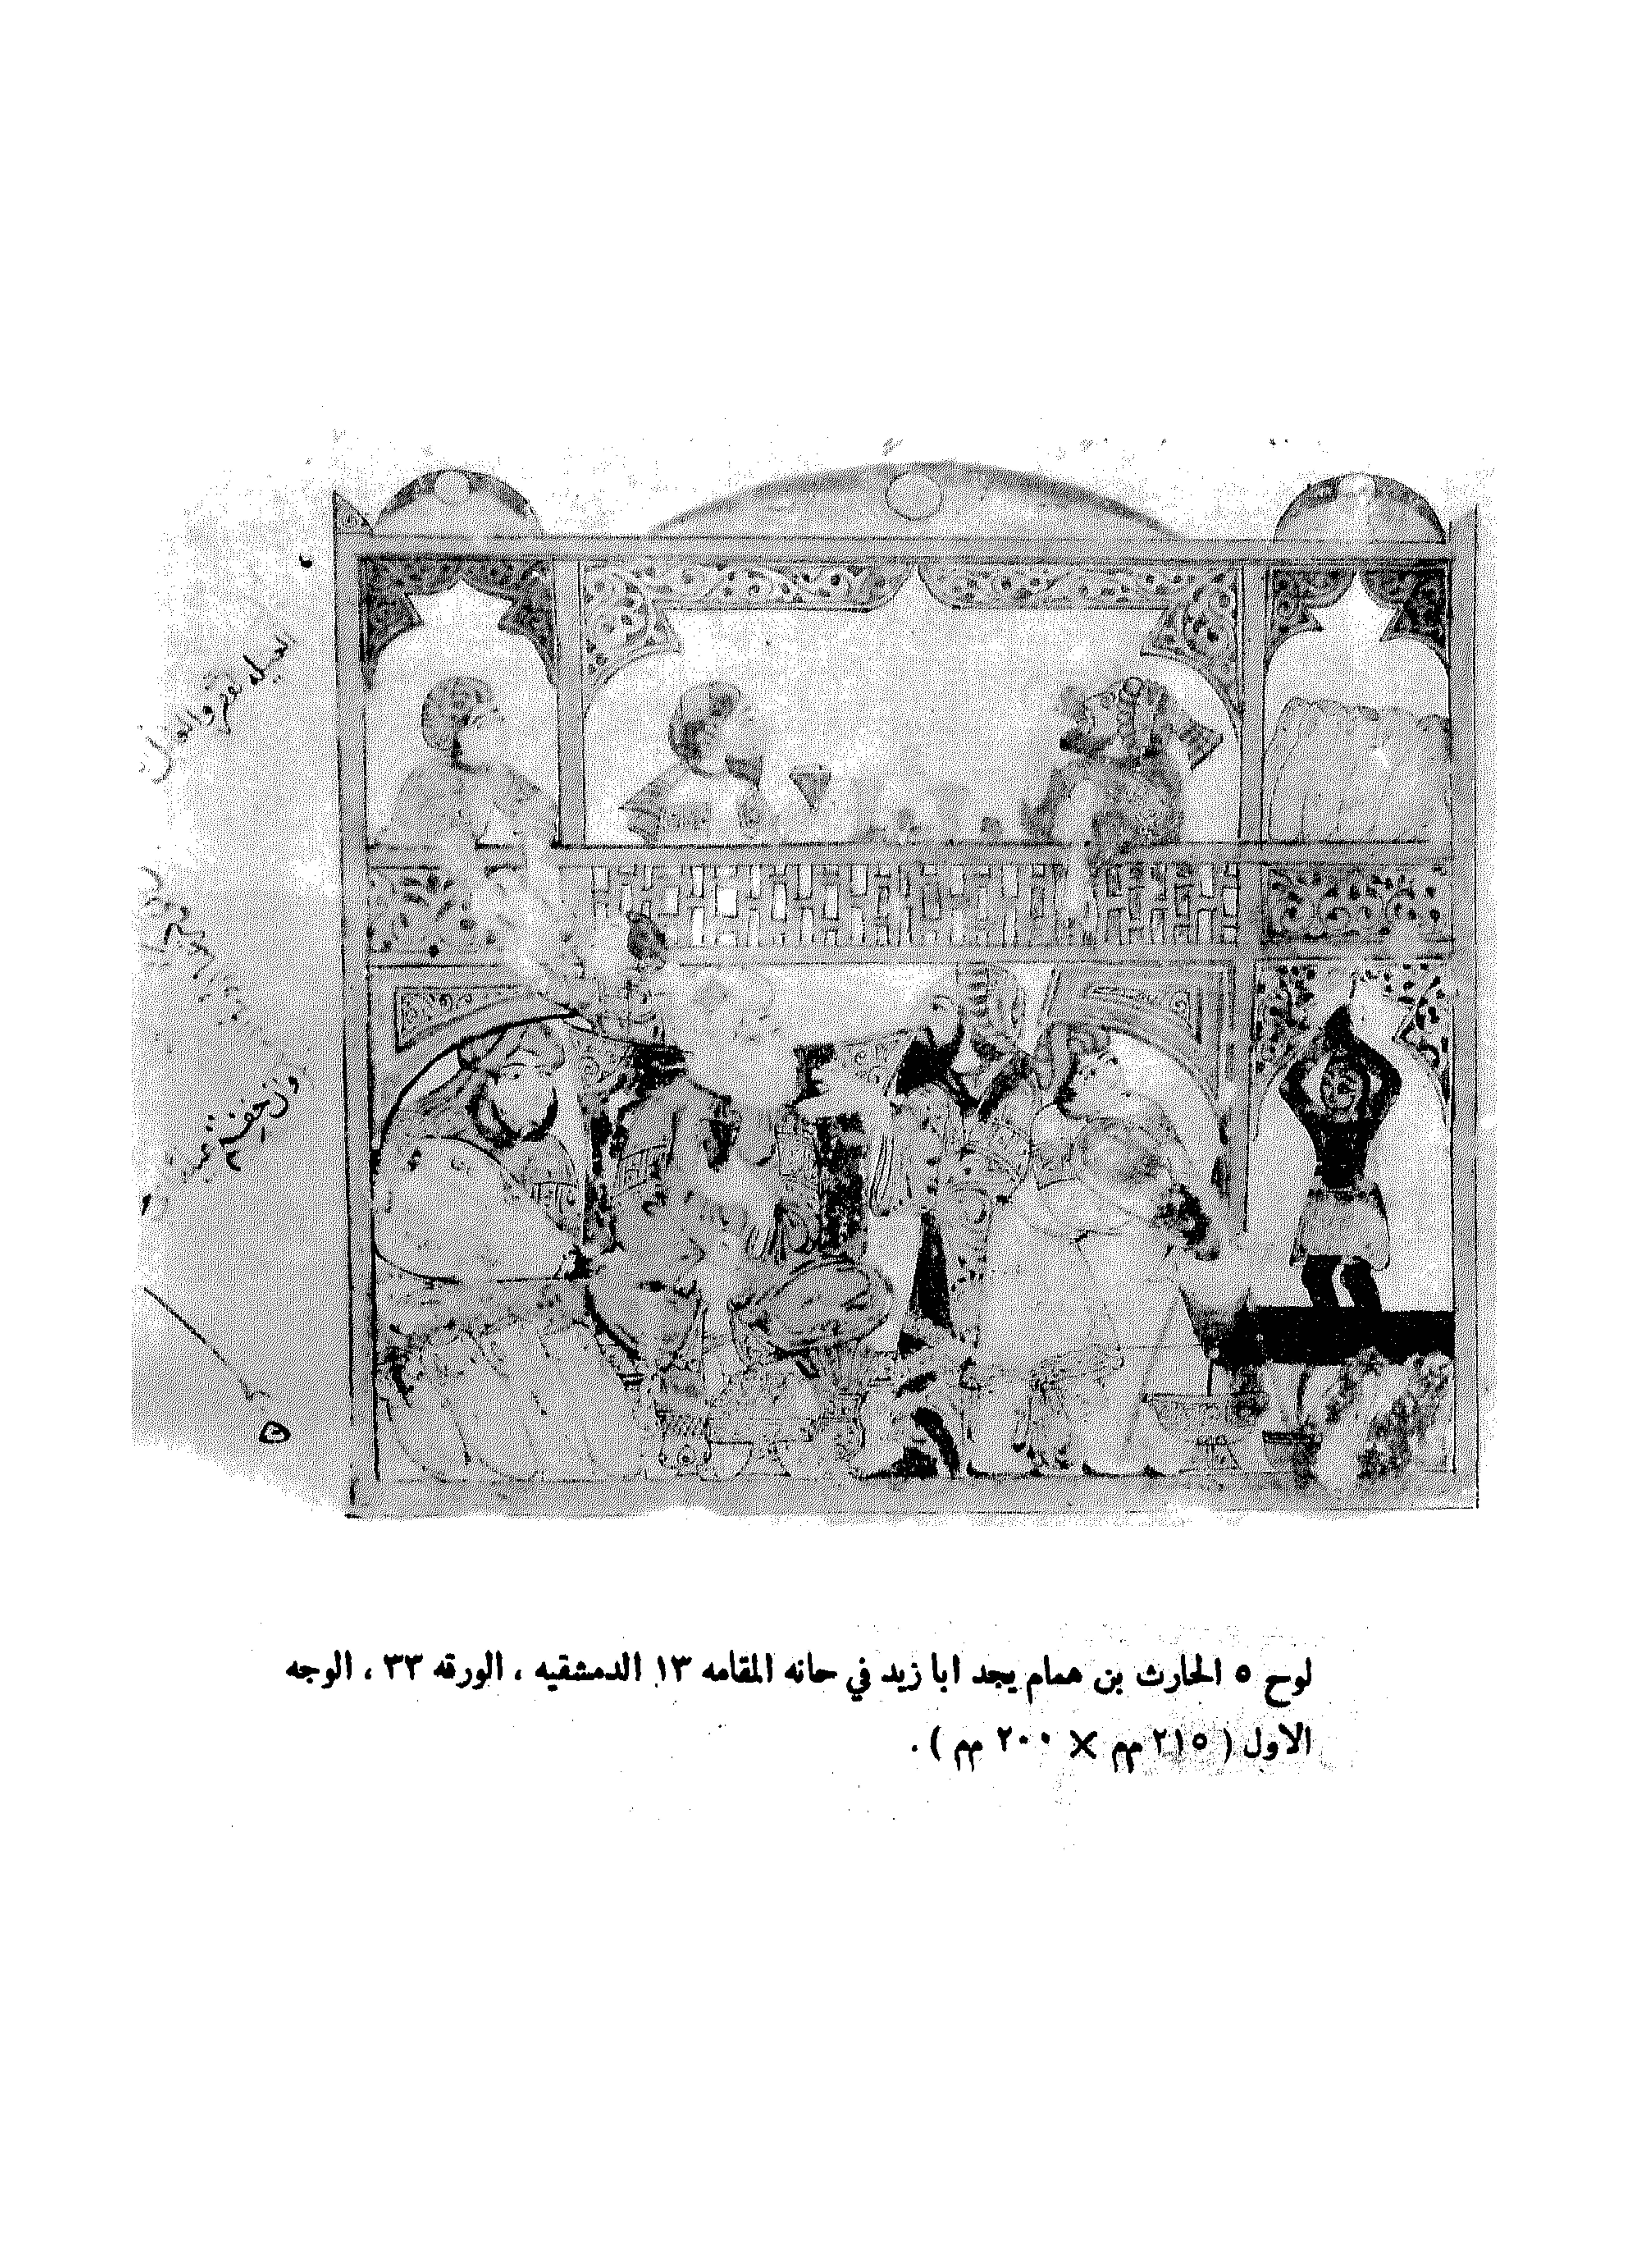 لوح ٥ الحارث بن همام يجد ابا زيد في حانه المقامه ١٣ الدمشقيه ، الورقه ٣٣ ، الوجه
الاول ( ٢١٥ مم × ٢٠٠ مم ) .